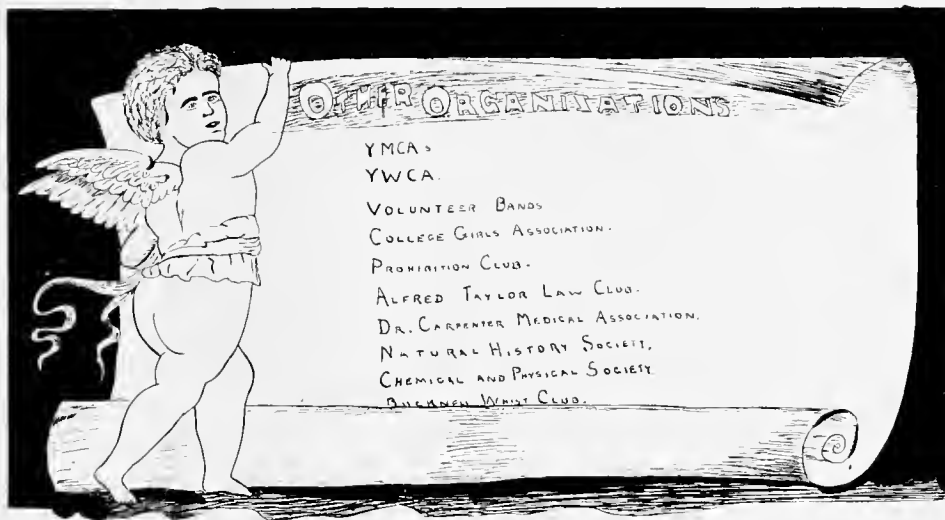 OTHER ORGANIZATIONS.
YMCA's
YWCA.
VOLUNTEER BANDS
COLLEGE GIRLS ASSOCIATION.
PROHIBITION CLUB.
ALFRED TAYLOR LAW CLUB.
DR. CARPENTER MEDICAL ASSOCIATION.
NATURAL HISTORY SOCIETY.
CHEMICAL AND PHYSICAL SOCIETY.
BUCKNELL WHIST CLUB.